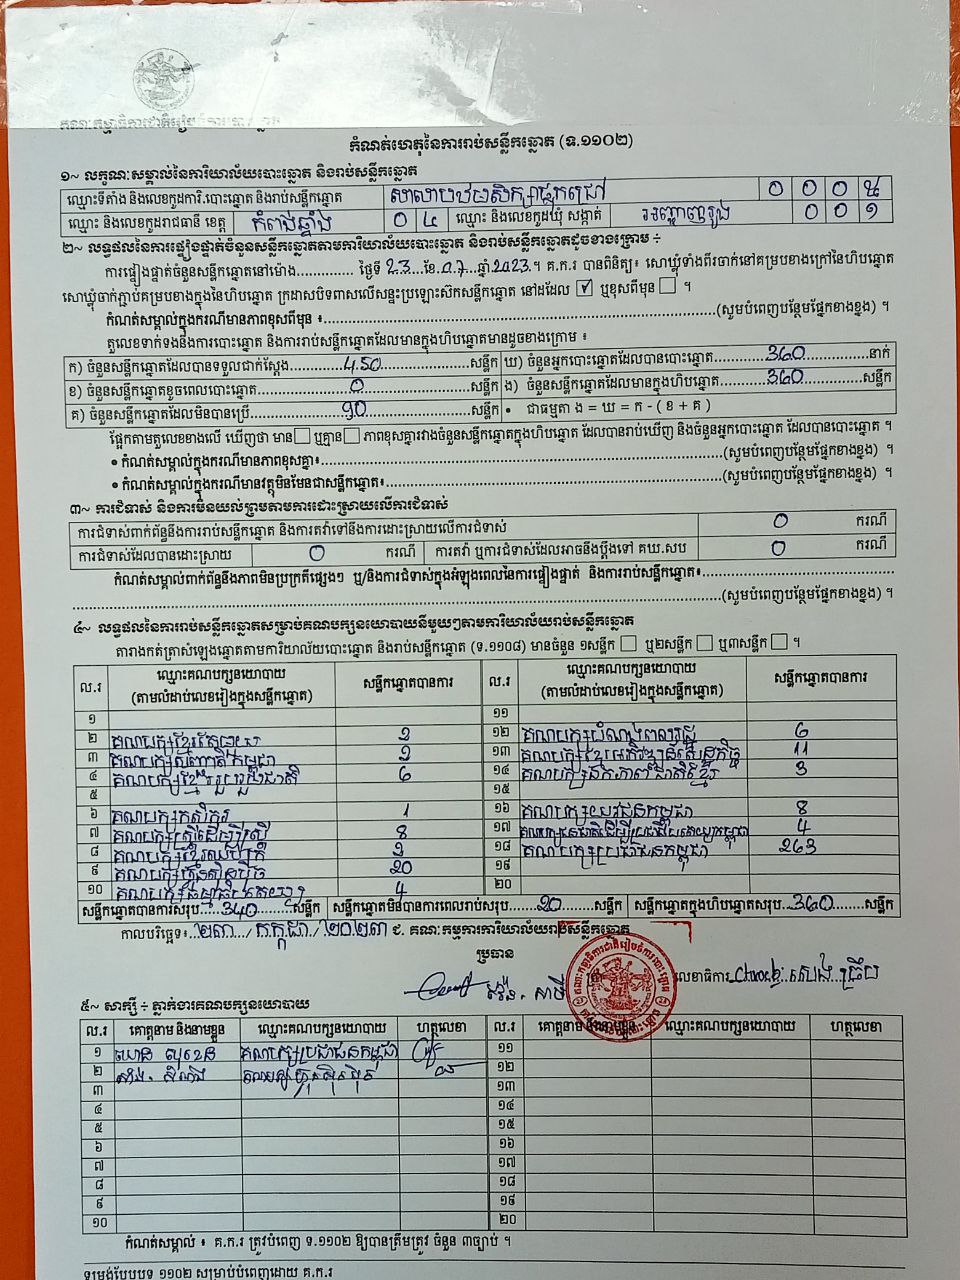 គណៈកម្មាធិការជាតិរៀបចំការបោះឆ្នោត
កំណត់ហេតុនៃការរាប់សន្លឹកឆ្នោត (ទ.១១០២)
១~ លក្ខណៈសម្គាល់នៃការិយាល័យបោះឆ្នោត និងរាប់សន្លឹកឆ្នោត
ឈ្មោះទីតាំង និងលេខកូដការិ.បោះឆ្នោត និងរាប់សន្លឹកឆ្នោត សាលាបឋមសិក្សាផ្លូកជ្រៅ ០ ០ ០ ៥
ឈ្មោះ និងលេខកូដរាជធានី ខេត្ត កំពង់ឆ្នាំង ០ ៤ ឈ្មោះ និងលេខកូដឃុំ សង្កាត់ អញ្ចាញរូង ០ ០ ១
២~ លទ្ធផលនៃការផ្ទៀងផ្ទាត់ចំនួនសន្លឹកឆ្នោតតាមការិយាល័យបោះឆ្នោត និងរាប់សន្លឹកឆ្នោតដូចខាងក្រោម ÷
ការផ្ទៀងផ្ទាត់ចំនួនសន្លឹកឆ្នោតនៅម៉ោង.............. ថ្ងៃទី 23 ខែ 07 ឆ្នាំ 2023 ។ គ.ក.រ បានពិនិត្យ៖ សោឃ្លុំទាំងពីរចាក់នៅគម្របខាងក្រៅនៃហិបឆ្នោត
សោឃ្លុំចាក់ភ្ជាប់គម្របខាងក្នុងនៃហិបឆ្នោត ក្រដាសបិទពាសលើសន្ទះប្រឡោះស៊កសន្លឹកឆ្នោត នៅដដែល ☑ ឬខុសពីមុន ☐ ។
កំណត់សម្គាល់ក្នុងករណីមានភាពខុសពីមុន ៖..........(សូមបំពេញបន្ថែមផ្នែកខាងខ្នង) ។
តួលេខទាក់ទងនឹងការបោះឆ្នោត និងការរាប់សន្លឹកឆ្នោតដែលមានក្នុងហិបឆ្នោតមានដូចខាងក្រោម ៖
ក) ចំនួនសន្លឹកឆ្នោតដែលបានទទួលជាក់ស្តែង 450 សន្លឹក ឃ) ចំនួនអ្នកបោះឆ្នោតដែលបានបោះឆ្នោត 360 នាក់
ខ) ចំនួនសន្លឹកឆ្នោតខូចពេលបោះឆ្នោត 0 សន្លឹក ង) ចំនួនសន្លឹកឆ្នោតដែលមានក្នុងហិបឆ្នោត 360 សន្លឹក
គ) ចំនួនសន្លឹកឆ្នោតដែលមិនបានប្រើ 90 សន្លឹក • ជាធម្មតា ង = ឃ = ក - ( ខ + គ )
ផ្អែកតាមតួលេខខាងលើ ឃើញថា មាន ☐ ឬគ្មាន ☐ ភាពខុសគ្នារវាងចំនួនសន្លឹកឆ្នោតក្នុងហិបឆ្នោត ដែលបានរាប់ឃើញ និងចំនួនអ្នកបោះឆ្នោត ដែលបានបោះឆ្នោត ។
• កំណត់សម្គាល់ក្នុងករណីមានភាពខុសគ្នា៖..........(សូមបំពេញបន្ថែមផ្នែកខាងខ្នង) ។
• កំណត់សម្គាល់ក្នុងករណីមានវត្ថុមិនមែនជាសន្លឹកឆ្នោត៖..........(សូមបំពេញបន្ថែមផ្នែកខាងខ្នង) ។
៣~ ការជំទាស់ និងការមិនយល់ព្រមតាមការដោះស្រាយលើការជំទាស់
ការជំទាស់ពាក់ព័ន្ធនឹងការរាប់សន្លឹកឆ្នោត និងការតវ៉ាទៅនឹងការដោះស្រាយលើការជំទាស់ 0 ករណី
ការជំទាស់ដែលបានដោះស្រាយ 0 ករណី ការតវ៉ា ឬការជំទាស់ដែលអាចនឹងប្តឹងទៅ គឃ.សប 0 ករណី
កំណត់សម្គាល់ពាក់ព័ន្ធនឹងភាពមិនប្រក្រតីផ្សេងៗ ឬ/និងការជំទាស់ក្នុងអំឡុងពេលនៃការផ្ទៀងផ្ទាត់ និងការរាប់សន្លឹកឆ្នោត៖..........
..........(សូមបំពេញបន្ថែមផ្នែកខាងខ្នង) ។
៤~ លទ្ធផលនៃការរាប់សន្លឹកឆ្នោតសម្រាប់គណបក្សនយោបាយនីមួយៗតាមការិយាល័យរាប់សន្លឹកឆ្នោត
តារាងកត់ត្រាសំឡេងឆ្នោតតាមការិយាល័យបោះឆ្នោត និងរាប់សន្លឹកឆ្នោត (ទ.១១០៨) មានចំនួន ១សន្លឹក ☐ ឬ២សន្លឹក ☐ ឬ៣សន្លឹក ☐ ។
ល.រ ឈ្មោះគណបក្សនយោបាយ (តាមលំដាប់លេខរៀងក្នុងសន្លឹកឆ្នោត) សន្លឹកឆ្នោតបានការ ល.រ ឈ្មោះគណបក្សនយោបាយ (តាមលំដាប់លេខរៀងក្នុងសន្លឹកឆ្នោត) សន្លឹកឆ្នោតបានការ
១ ១១
២ គណបក្សខ្មែរតែមួយ 2 ១២ គណបក្សបំណងពលរដ្ឋ 6
៣ គណបក្សសញ្ជាតិកម្ពុជា 2 ១៣ គណបក្សខ្មែរអភិវឌ្ឍន៍សេដ្ឋកិច្ច 11
៤ គណបក្សខ្មែររួបរួមជាតិ 6 ១៤ គណបក្សឯកភាពជាតិខ្មែរ 3
៥ ១៥
៦ គណបក្សកសិករ 1 ១៦ គណបក្សយុវជនកម្ពុជា 8
៧ គណបក្សស្ត្រីដើម្បីស្ត្រី 8 ១៧ គណបក្សជនជាតិដើមប្រជាធិបតេយ្យកម្ពុជា 4
៨ គណបក្សខ្មែរឈប់ក្រ 2 ១៨ គណបក្សប្រជាជនកម្ពុជា 263
៩ គណបក្សហ្វ៊ុនស៊ិនប៉ិច 20 ១៩
១០ គណបក្សធម្មាធិបតេយ្យ 4 ២០
សន្លឹកឆ្នោតបានការសរុប 340 សន្លឹក សន្លឹកឆ្នោតមិនបានការពេលរាប់សរុប 20 សន្លឹក សន្លឹកឆ្នោតក្នុងហិបឆ្នោតសរុប 360 សន្លឹក
កាលបរិច្ឆេទ៖ ២៣ / កក្កដា / ២០២៣ ជ. គណៈកម្មការការិយាល័យរាប់សន្លឹកឆ្នោត
ប្រធាន លេខាធិការ
៥~ សាក្សី ÷ ភ្នាក់ងារគណបក្សនយោបាយ
ល.រ គោត្តនាម និងនាមខ្លួន ឈ្មោះគណបក្សនយោបាយ ហត្ថលេខា ល.រ គោត្តនាម និងនាមខ្លួន ឈ្មោះគណបក្សនយោបាយ ហត្ថលេខា
១ គណបក្សប្រជាជនកម្ពុជា ១១
២ គណបក្សហ្វ៊ុនស៊ិនប៉ិច ១២
៣ ១៣
៤ ១៤
៥ ១៥
៦ ១៦
៧ ១៧
៨ ១៨
៩ ១៩
១០ ២០
កំណត់សម្គាល់ ៖ គ.ក.រ ត្រូវបំពេញ ទ.១១០២ ឱ្យបានត្រឹមត្រូវ ចំនួន ៣ច្បាប់ ។
ទម្រង់បែបបទ ១១០២ សម្រាប់បំពេញដោយ គ.ក.រ